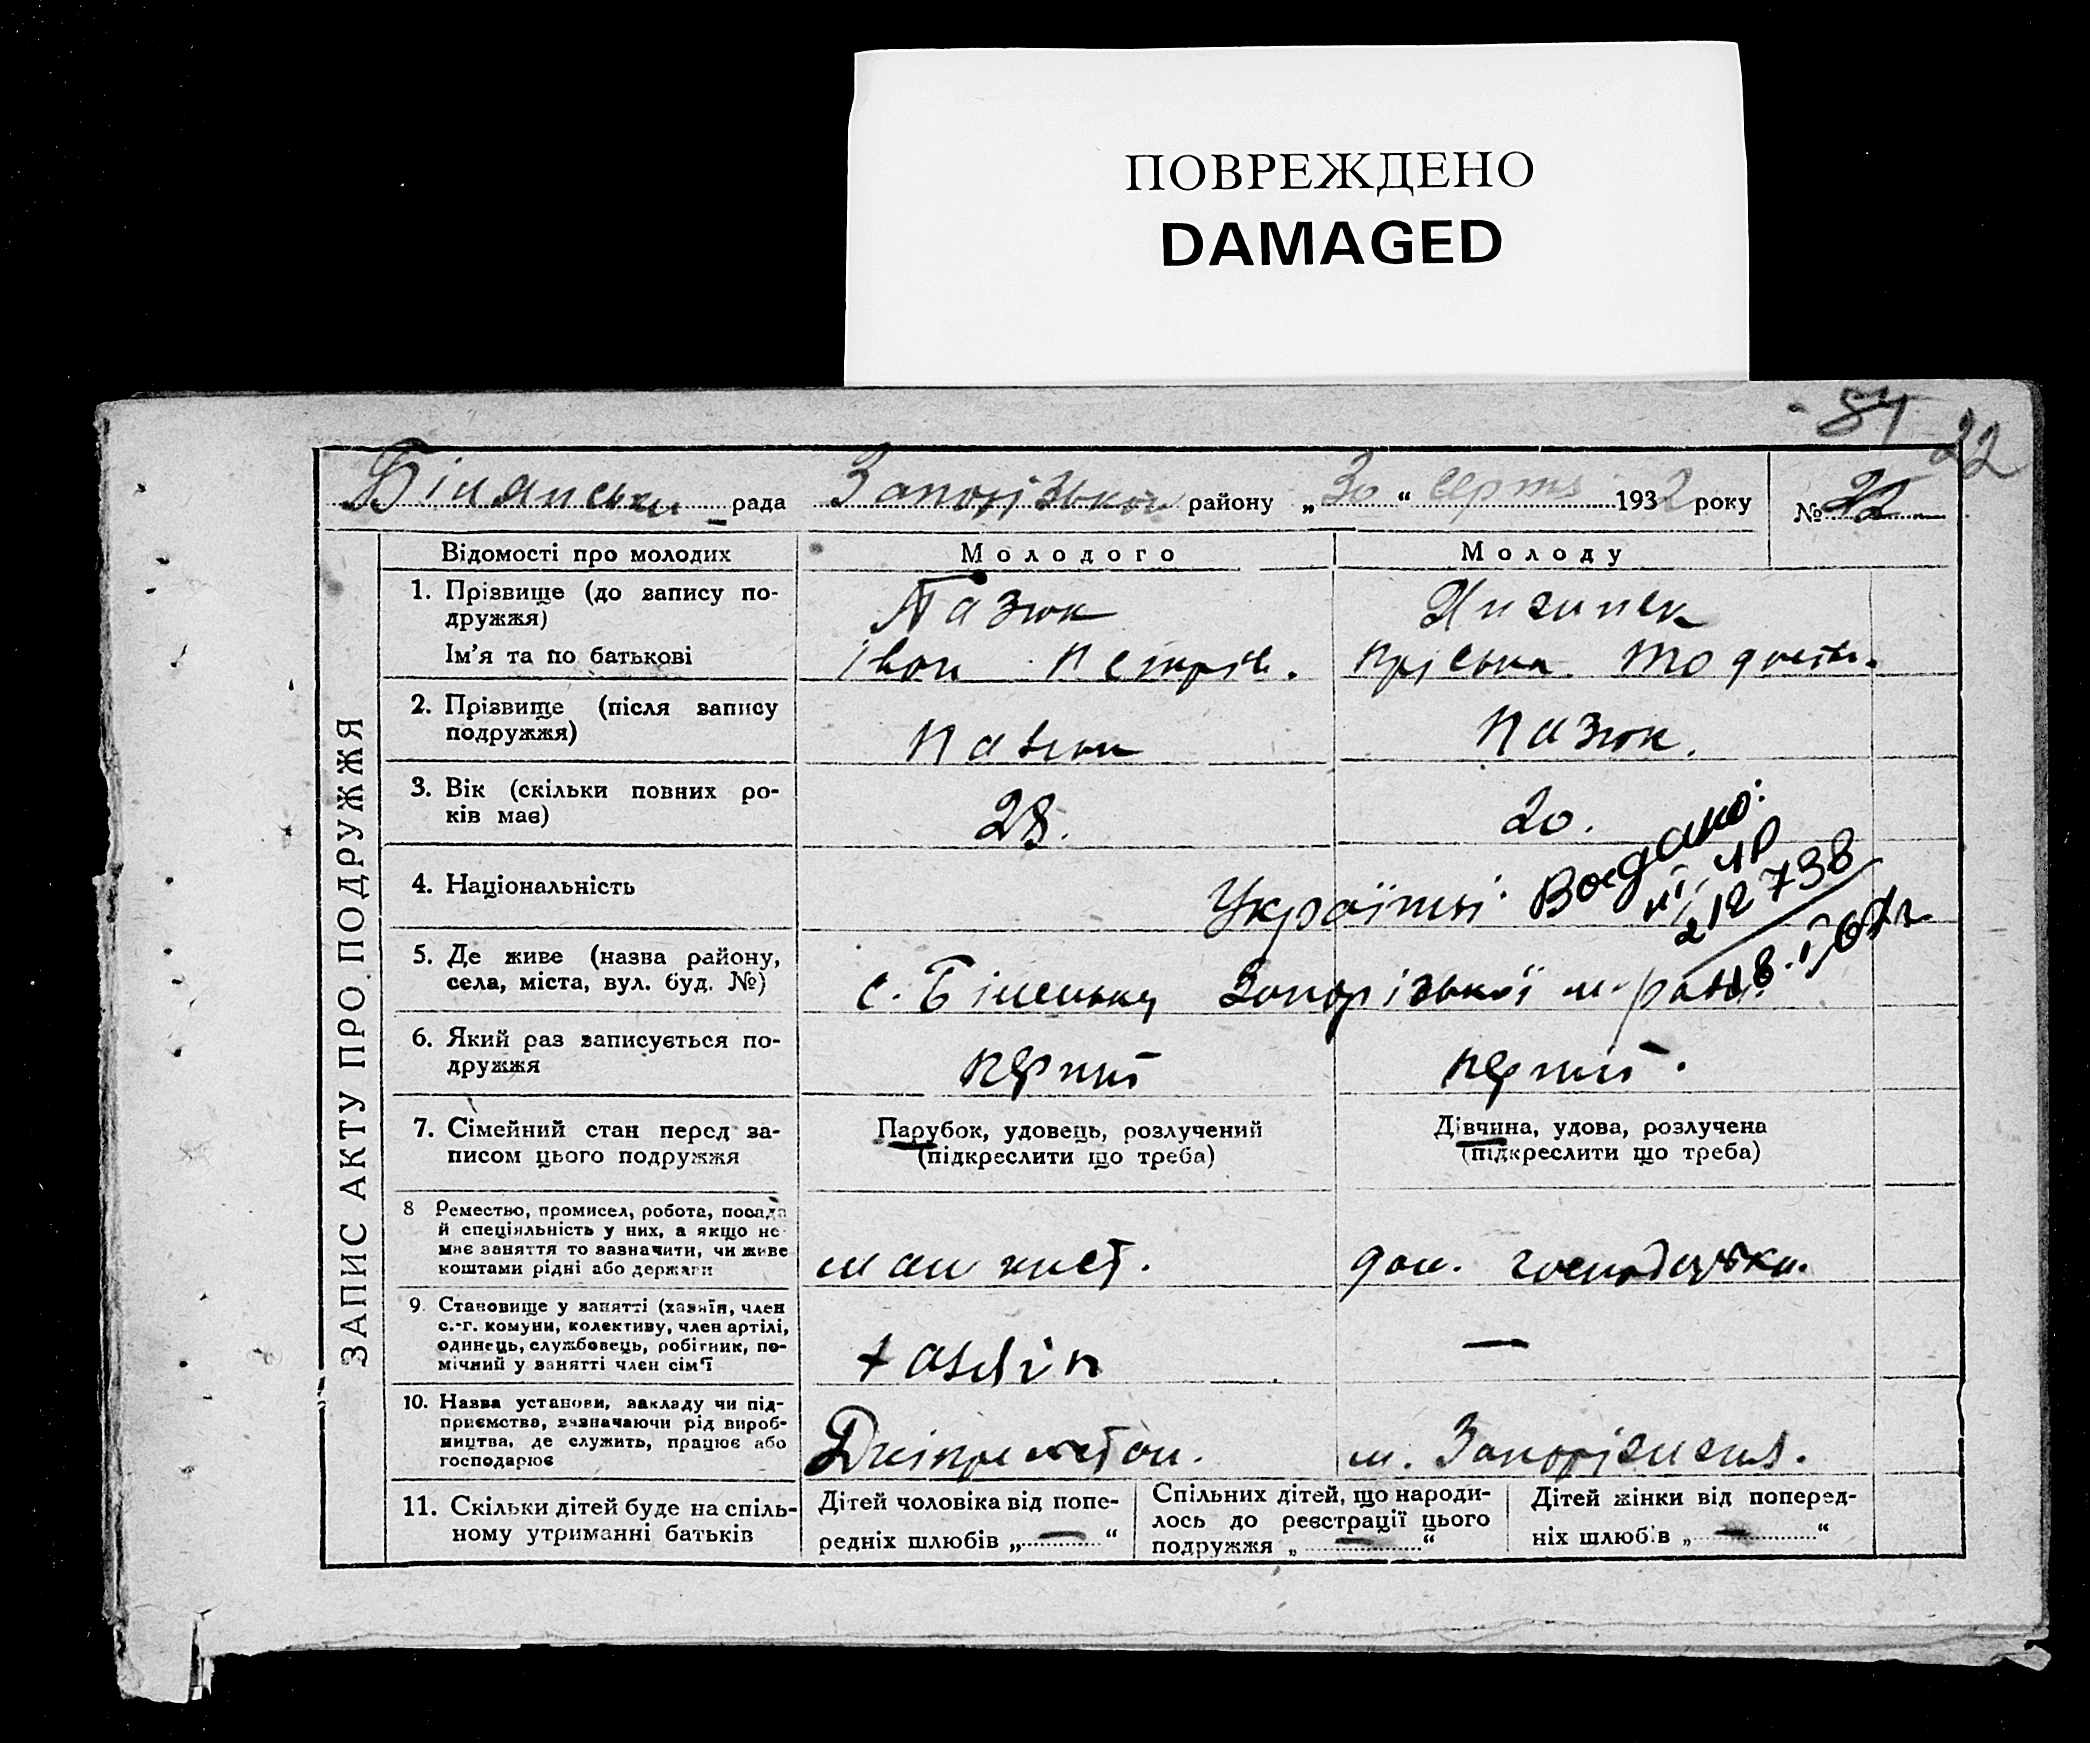 ПОВРЕЖДЕНО
DAMAGED
84
22
рада Запорізької району „30“ серпня 1932 року № 22
ЗАПИС АКТУ ПРО ПОДРУЖЖЯ
Відомості про молодих
Молодого
Молоду
1. Прізвище (до запису по-
дружжя)
Ім'я та по батькові
Пазюк
Іван Петрів.
Пріська
2. Прізвище (після запису
подружжя)
Пазюк
Пазюк.
3. Вік (скільки повних ро-
ків має)
28.
20.
4. Національність
Українці
Видано:
212738
5. Де живе (назва району,
села, міста, вул. буд. №)
с. Біленьку Запорізької м-ради
6. Який раз записується по-
дружжя
перший
перший.
7. Сімейний стан перед за-
писом цього подружжя
Парубок, удовець, розлучений
(підкреслити що треба)
Дівчина, удова, розлучена
(підкреслити що треба)
8 Ремество, промисел, робота, посада
й спеціяльність у них, а якщо не
має заняття то зазначити, чи живе
коштами рідні або держави
машиніст.
дом. господарка.
9. Становище у занятті (хазяїн, член
с.-г. комуни, колективу, член артілі,
одинець, службовець, робітник, по-
мічний у занятті член сім'ї
—
10. Назва установи, закладу чи під-
приємства, зазначаючи рід вироб-
ництва, де служить, працює або
господарює
м. Запоріжжя.
11. Скільки дітей буде на спіль-
ному утриманні батьків
Дітей чоловіка від попе-
редніх шлюбів „—“
Спільних дітей, що народи-
лось до реєстрації цього
подружжя „—“
Дітей жінки від поперед-
ніх шлюбів „—“